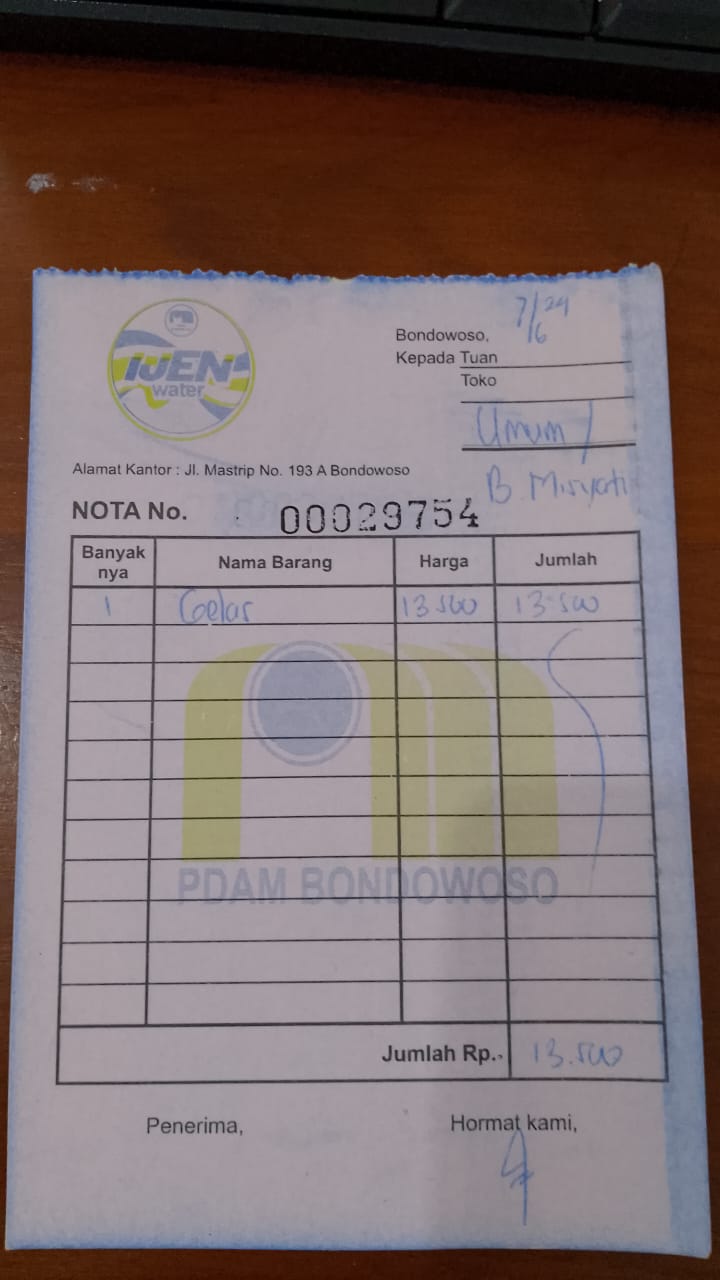 IJEN
water
7/6 24
Bondowoso,
Kepada Tuan
Toko
Umum /
B. Misyati
Alamat Kantor : Jl. Mastrip No. 193 A Bondowoso
NOTA No. 00029754
Banyak nya Nama Barang Harga Jumlah
1 Gelas 13.500 13.500
PDAM BONDOWOSO
Jumlah Rp. 13.500
Penerima, Hormat kami,